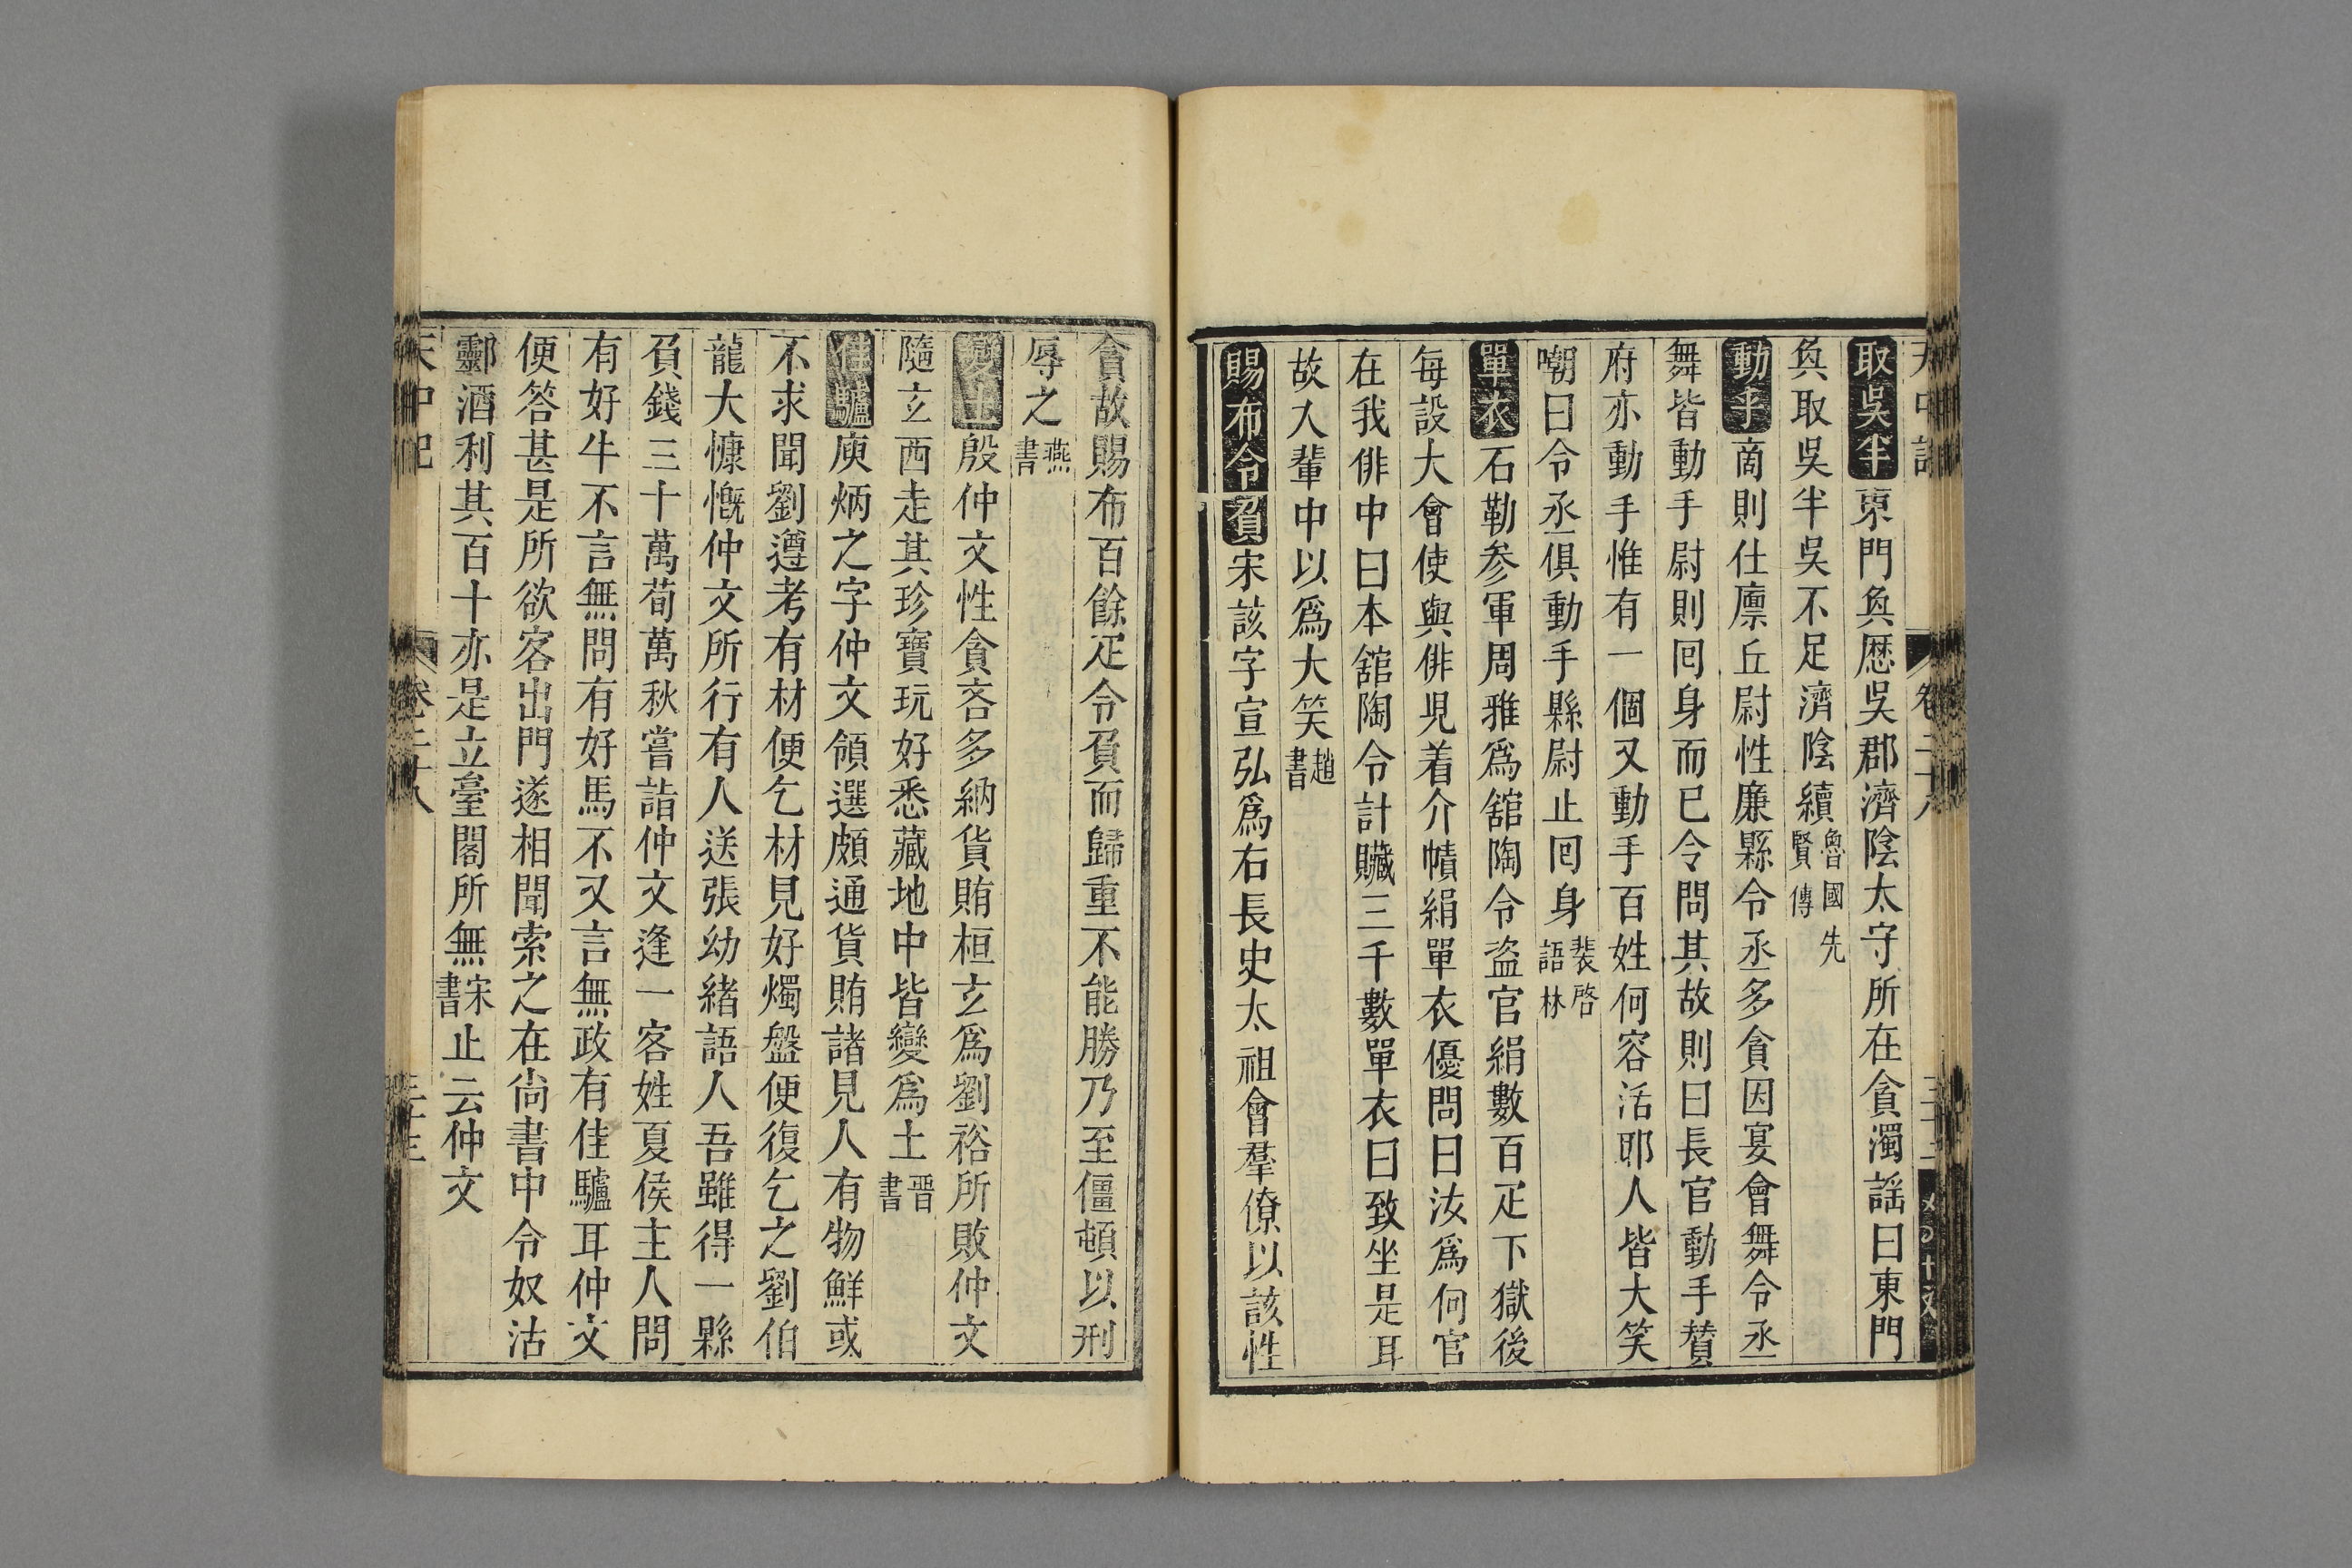 取吳半東門奐歷吳郡濟陰太守所在貪濁謡曰東門
奐取吳半吳不足濟陰續魯國先賢傳
動手啇則仕廩丘尉性廉縣令丞多貪因宴會舞令丞
舞皆動手尉則回身而已令問其故則曰長官動手贊
府亦動手惟有一個又動手百姓何容活耶人皆大笑
嘲曰令丞俱動手縣尉止回身裴啓語林
單衣石勒参軍周雅爲舘陶令盗官絹數百疋下獄後
每設大會使與俳児着介幘絹單衣優問曰汝爲何官
在我俳中曰本舘陶令計贜三千數單衣曰致坐是耳
故入輩中以爲大笑趙書
賜布令負宋該字宣弘爲右長史太祖會羣僚以該性
貪故賜布百餘疋令負而歸重不能勝乃至僵頓以刑
辱之燕書
變土殷仲文性貪吝多納貨賄桓玄爲劉裕所敗仲文
隨玄西走其珍寶玩好悉藏地中皆變爲土晋書
佳驢庾炳之字仲文領選頗通貨賄諸見人有物鮮或
不求聞劉遵考有材便乞材見好燭盤便復乞之劉伯
龍大慷慨仲文所行有人送張幼緒語人吾雖得一縣
負錢三十萬荀萬秋嘗詣仲文逢一客姓夏侯主人問
有好牛不言無問有好馬不又言無政有佳驢耳仲文
便答甚是所欲客出門遂相聞索之在尚書中令奴沽
酃酒利其百十亦是立臺閣所無宋書止云仲文
天中記 卷二十八